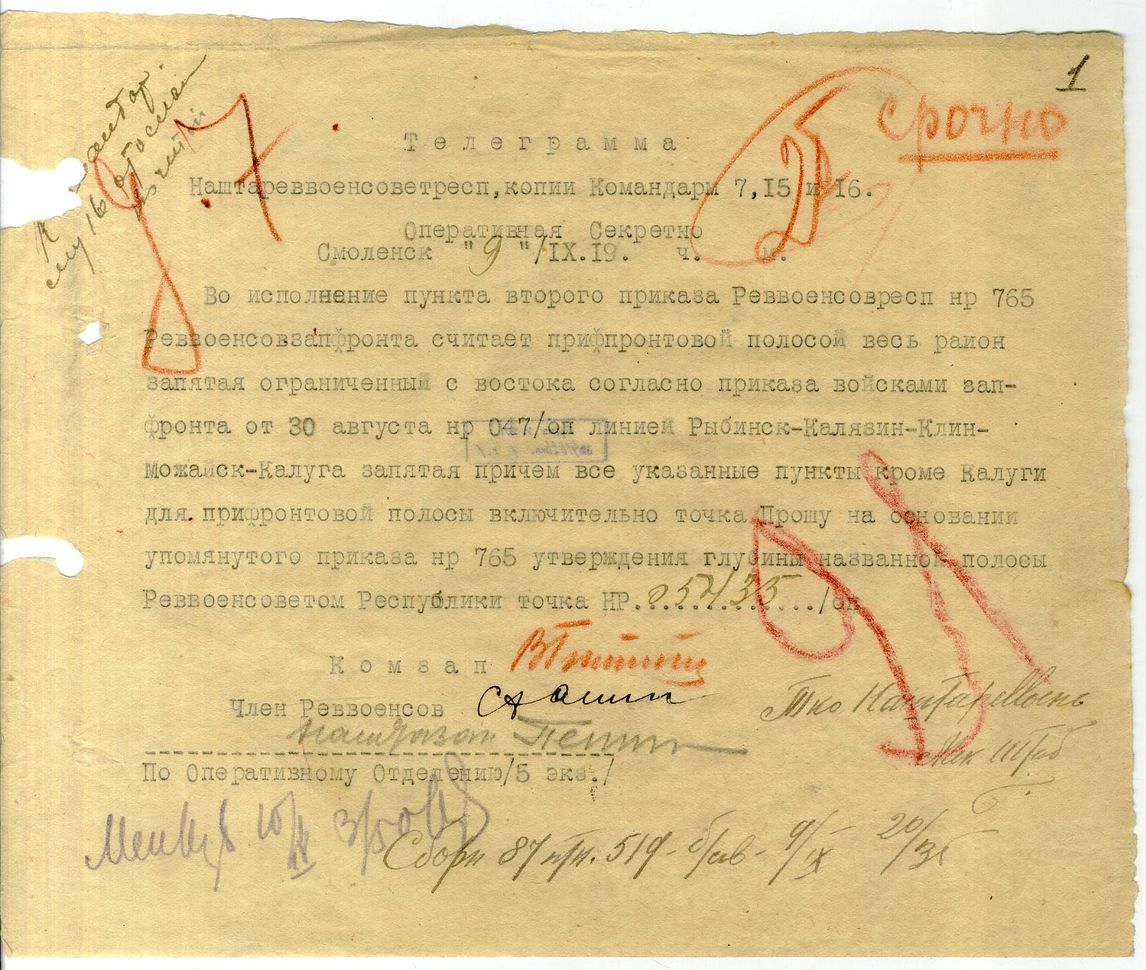 1
Срочно
25
7
Телеграмма
Наштареввоенсоветресп,копии Командарм 7,15 и 16.
Оперативная Секретно
Смоленск "9"/IX.19. ч. м.
Во исполнение пункта второго приказа Реввоенсовресп нр 765
Реввоенсовзапфронта считает прифпронтовой полосой весь раион
запятая ограниченный с востока согласно приказа войсками зап-
фронта от 30 августа нр 047/оп линией Рыбинск-Калязин-Клин-
Можайск-Калуга запятая причем все указанные пункты кроме Калуги
для прифронтовой полосы включительно точка Прошу на основании
упомянутого приказа нр 765 утверждения глубины названной полосы
Реввоенсоветом Республики точка НР....05435..../оп
Комзап
Член Реввоенсов Сталин
Наштазап Петин
По Оперативному Отделению/5 экз./
87 519 9/IX